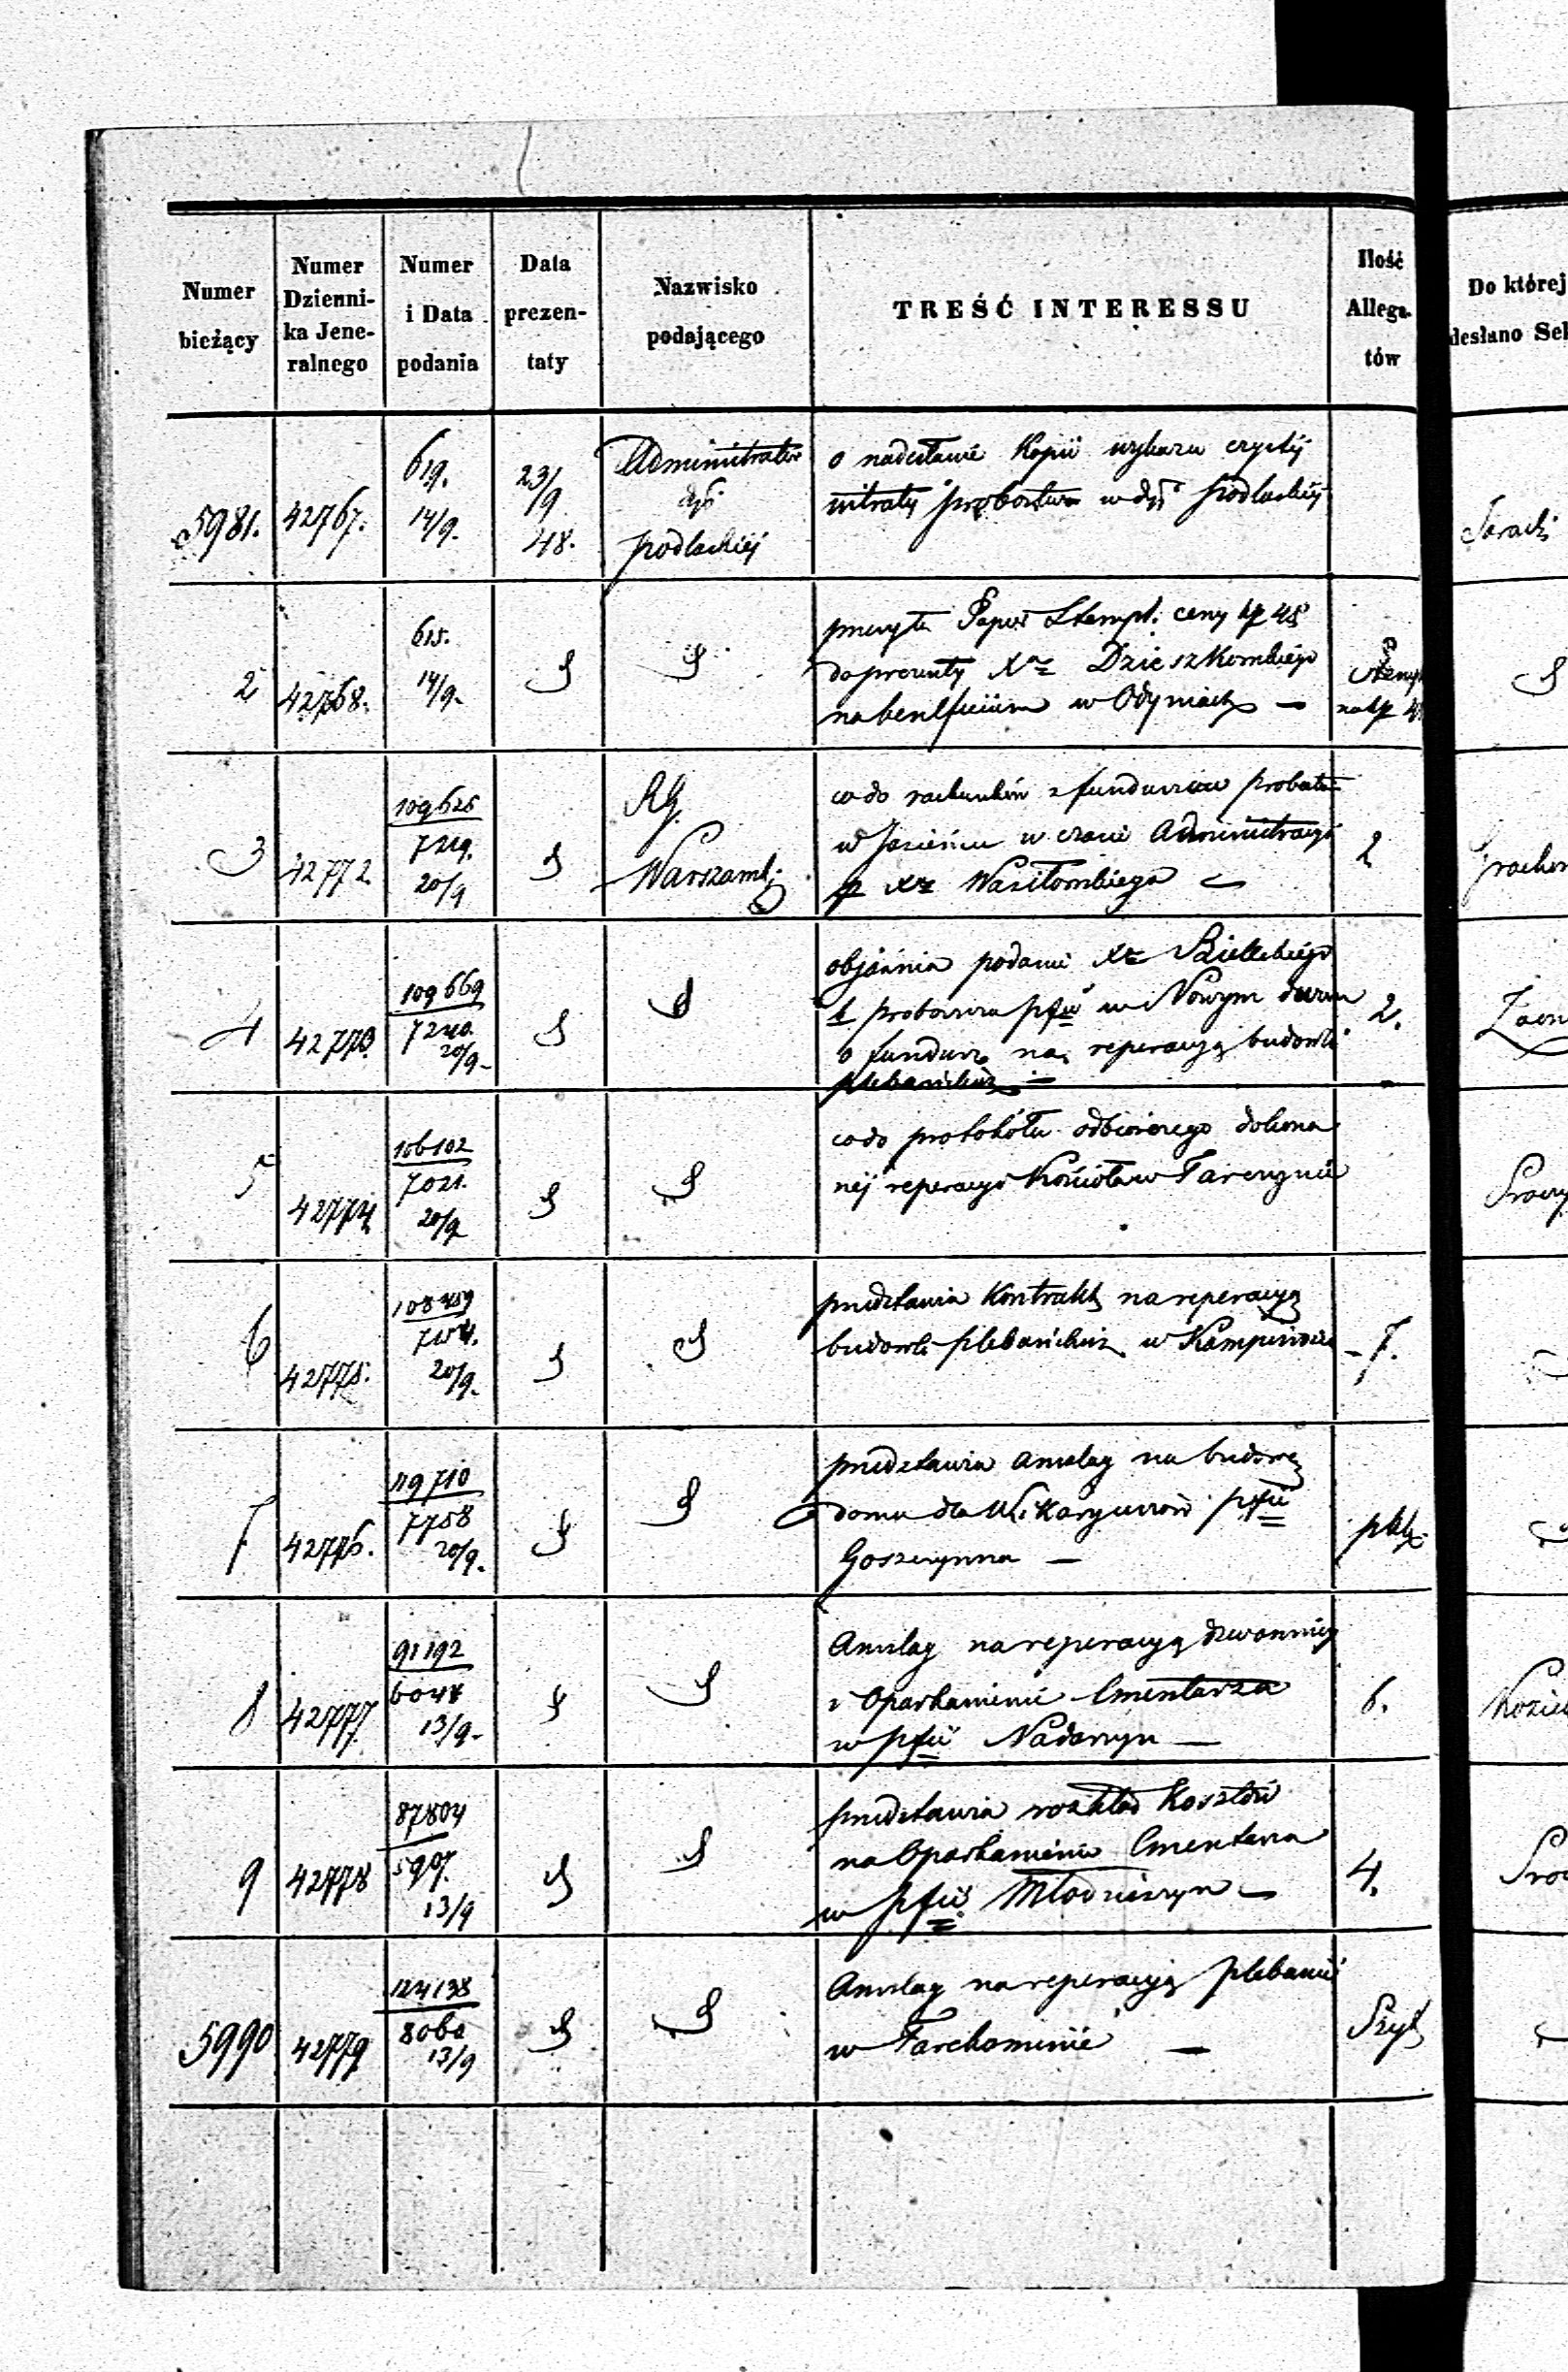 Numer bieżący
Numer Dzienni-ka Jene-ralnego
Numer i Data podania
Data prezen-taty
Nazwisko podającego
TREŚĆ INTERESSU
Ilość Allega-tów
Do której
desłano Sek
5981. 42767. 619. 14/9. 23/9 48. Administrator dyi podlaskiej
o nadesłanie Kopii wykazu czystej
intraty probostwa w dyi podlaskiej
2 42768. 615. 14/9.
Papier Stempl. ceny
do prezenty Xa Dzieszkowskiego
na beneficium w Odyniach —
3 42772 109625 7219. 20/9 RG. Warszaws.
co do rachunków z funduszów
w Jasieńcu w czasie Administracyi
p Xa Wasiłowskiego
2
4 42773 109669 7240. 20/9-
objaśnia podanie Xa Bielickiego
proboszcza pfii w Nowym
o fundusz na reperacyą budowli
plebańskich —
2.
5 42774 106102 7021. 20/9
co do protokółu odbiorczego dokona
nej reperacyi Kościoła w Tarczynie
6 42775. 20/9.
przedstawia Kontrakt na reperacyą
budowli plebańskich w Kampinosie
7.
7 42776. 119710 7758 20/9.
przedstawia anszlag na budowę
domu dla Wikaryuszów pfii
Goszczynna —
8 42777 91192 6048 13/9-
Anszlag na reperacyą dzwonnicy
i Oparkanienie Cmentarza
w pfii Nadarzyn —
6.
9 42778 87804 5907. 13/9
przedstawia rozkład Kosztów
na Oparkanienie Cmentarza
w pfii Młodzieszyn —
4.
5990 42779 124138 8060 13/9
Anszlag na reperacyą plebanii
w Tarchominie —
Szyt